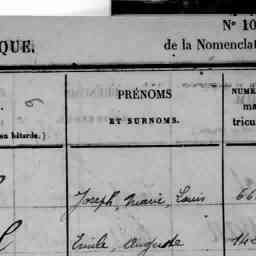 N° 10
QUE.
de la Nomenclat
PRÉNOMS
ET SURNOMS.
NUMÉ
ma
tricu
en bâtarde.)
Joseph, Marie, Louis 66
Emile, Auguste 148